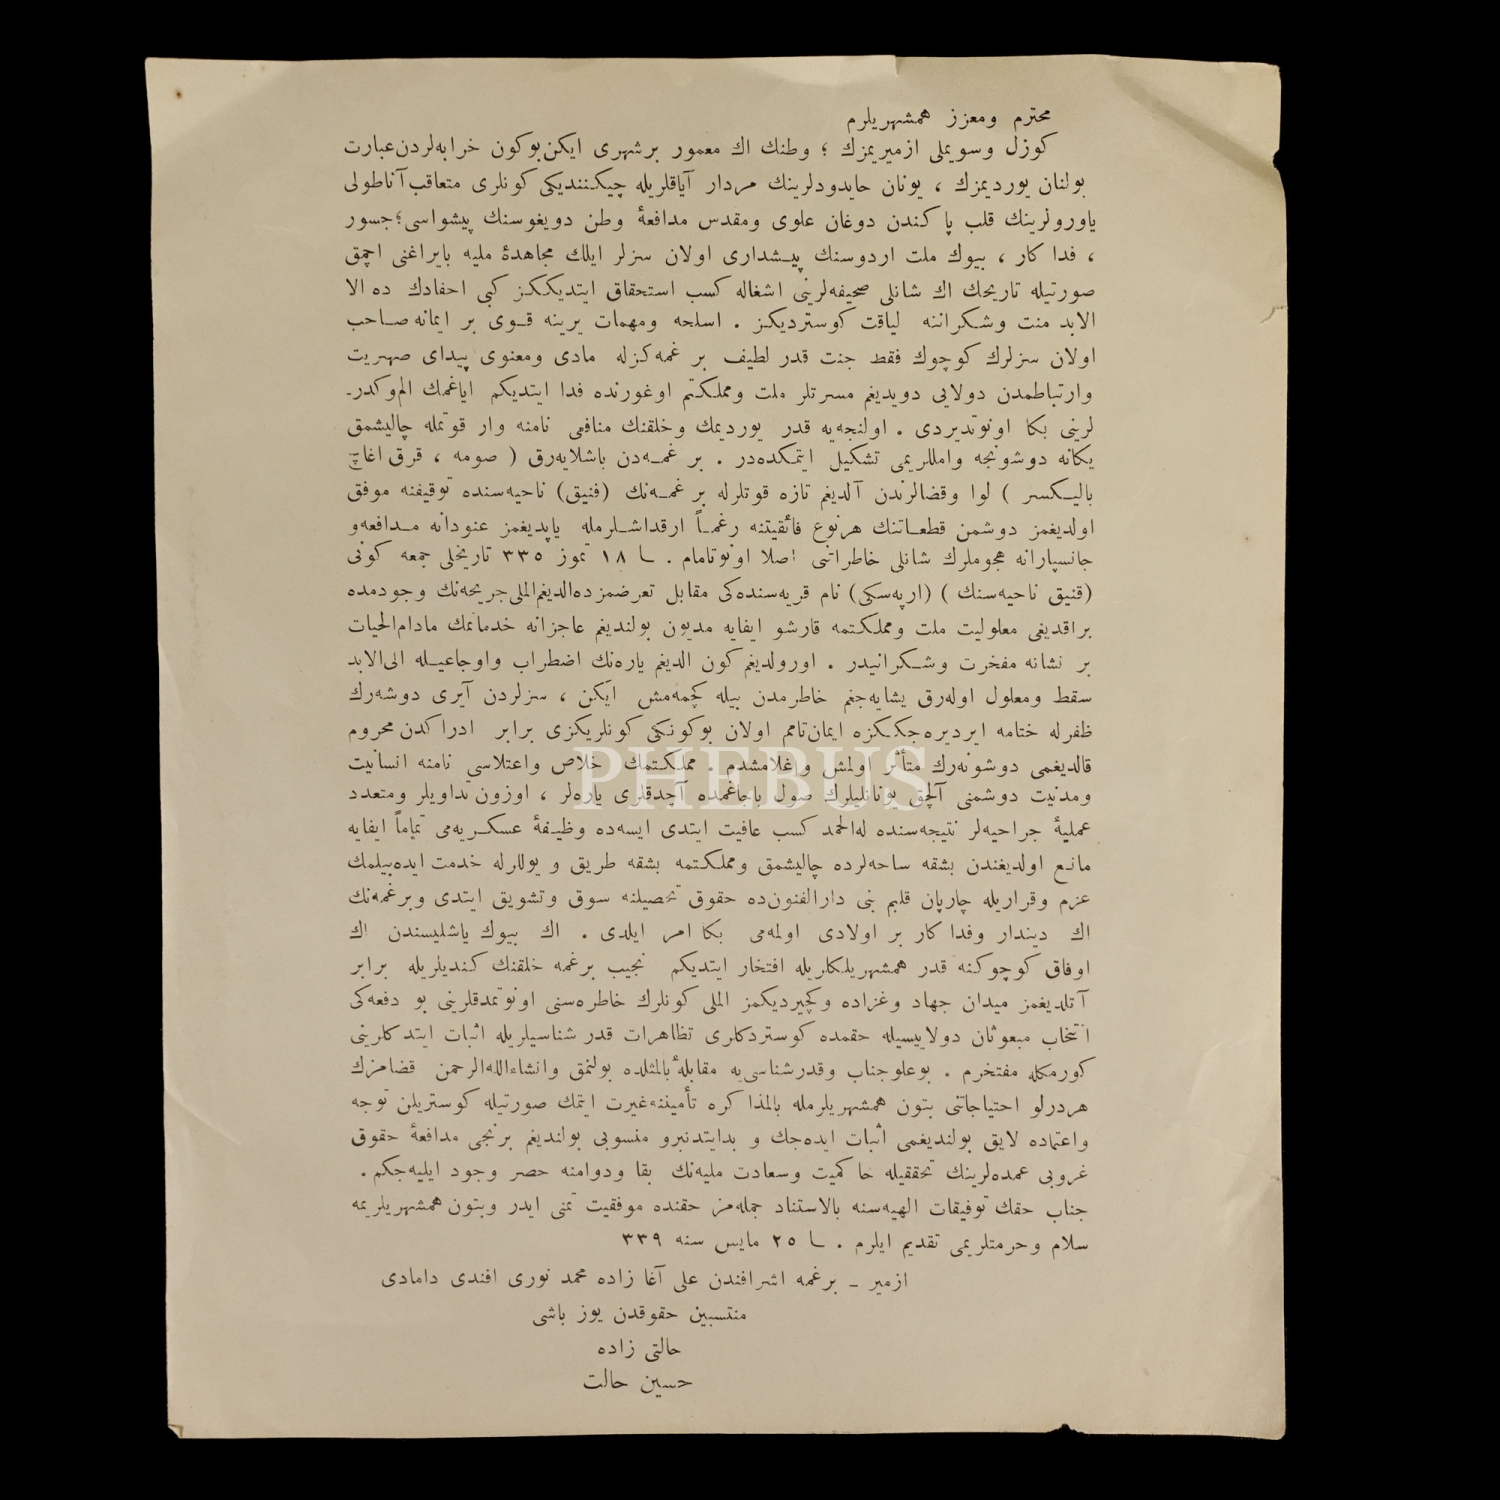 محترم ومعزز همشهریلرم
كوزل وسویملی ازمیریمزك ؛ وطنك اك معمور برشهری ایكن بوكون خرابه‌لردن عبارت
بولنان یوردیمزك ، یونان حایدودلرینك مردار آیاقلریله چیكنندیكی كونلری متعاقب آناطولی
یاورولرینك قلب پاكندن دوغان علوی ومقدس مدافعهٔ وطن دویغوسنك پیشواسی؛ جسور
، فدا كار ، بیوك ملت اردوسنك پیشداری اولان سزلر ایلك مجاهدهٔ ملیه بایراغنی آچمق
صورتیله تاریخك اك شانلی صحیفه‌لرینی اشغاله كسب استحقاق ایتدیككز كبی احفادك ده الا
الابد منت وشكراننه لیاقت كوستردیكز . اسلحه ومهمات یرینه قوی بر ایمانه صاحب
اولان سزلرك كوچوك فقط جنت قدر لطیف بر غمه‌كزله مادی ومعنوی پیدای صهریت
وارتباطمدن دولایی دویدیغم مسرتلر ملت ومملكتم اوغورنده فدا ایتدیكم ایاغمك الم وكدر-
لرینی بكا اونوتدیردی . اولنجه‌یه قدر یوردیمك وخلقنك منافعی نامنه وار قوتمله چالیشمق
یكانه دوشونجه واماللریمی تشكیل ایتمكده‌در . بر غمه‌دن باشلایه‌رق ( صومه ، قرق اغاچ
بالیكسر ) لوا وقضالرندن آلدیغم تازه قوتلرله بر غمه‌نك (قنیق) ناحیه‌سنده توقیفنه موفق
اولدیغمز دوشمن قطعاتنك هرنوع فائقیتنه رغماً ارقداشلرمله یاپدیغمز عنودانه مدافعه‌و
جانسپارانه هجوملرك شانلی خاطراتنی اصلا اونوتامام . ١٨ تموز ٣٣٥ تاریخلی جمعه كونی
(قنیق ناحیه‌سنك ) (ارپه‌سكی) نام قریه‌سنده‌كی مقابل تعرضمزده الدیغم الملی جریحه‌نك وجودمده
براقدیغی معلولیت ملت ومملكتمه قارشو ایفایه مدیون بولندیغم عاجزانه خدماتمك مادام الحیات
بر نشانه مفخرت وشكرانیدر . اورولدیغم كون الدیغم یاره‌نك اضطراب واوجاعیله الی الابد
سقط ومعلول اوله‌رق یشایه‌جغم خاطرمدن بیله كچمه‌مش ایكن ، سزلردن آیری دوشه‌رك
ظفرله ختامه ایردیره‌جككزه ایمان تامم اولان بوكونكی كونلریكزی برابر ادراكدن محروم
قالدیغمی دوشونه‌رك متأثر اولمش واغلامشدم . مملكتمك خلاص واعتلاسی نامنه انسانیت
ومدنیت دوشمنی آلچق یونانلیلرك صول باجاغمده آچدقلری یاره‌لر ، اوزون تداویلر ومتعدد
عملیهٔ جراحیه‌لر نتیجه‌سنده له‌الحمد كسب عافیت ایتدی ایسه‌ده وظیفهٔ عسكریه‌می تماماً ایفایه
مانع اولدیغندن بشقه ساحه‌لرده چالیشمق ومملكتمه بشقه طریق و یوللرله خدمت ایده‌بیلمك
عزم وقراریله چارپان قلبم بنی دارالفنون‌ده حقوق تحصیلنه سوق وتشویق ایتدی وبرغمه‌نك
اك دیندار وفدا كار بر اولادی اولمه‌می بكا امر ایلدی . اك بیوك یاشلیسندن اك
اوفاق كوچوكنه قدر همشهریلكلریله افتخار ایتدیكم نجیب برغمه خلقنك كندیلریله برابر
آتلدیغمز میدان جهاد وغزاده وكچیردیكمز الملی كونلرك خاطره‌سنی اونوتمدقلرینی بو دفعه‌كی
انتخاب مبعوثان دولاییسیله حقمده كوستردكلری تظاهرات قدر شناسیلریله اثبات ایتدكلرینی
كورمكله مفتخرم . بوعلوجناب وقدرشناسی‌یه مقابلهٔ بالمثلده بولنمق وانشاءالله الرحمن قضامزك
هردرلو احتیاجاتنی بتون همشهریلرمله بالمذاكره تأمیننه غیرت ایتمك صورتیله كوستریلن توجه
واعتماده لایق بولندیغمی اثبات ایده‌جك و بدایتدنبرو منسوبی بولندیغم برنجی مدافعهٔ حقوق
غروبی عمده‌لرینك تحققیله حاكمیت وسعادت ملیه‌نك بقا ودوامنه حصر وجود ایلیه‌جكم .
جناب حقك توفیقات الهیه‌سنه بالاستناد جمله‌مز حقنده موفقیت تمنی ایدر وبتون همشهریلریمه
سلام وحرمتلریمی تقدیم ایلرم . ٢٥ مایس سنه ٣٣٩
ازمیر ـ برغمه اشرافندن علی آغا زاده محمد نوری افندی دامادی
منتسبین حقوقدن یوز باشی
حالتی زاده
حسین حالت
PHEBUS